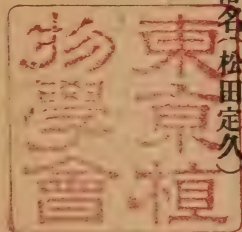 名松田定久)
東京植
物學會